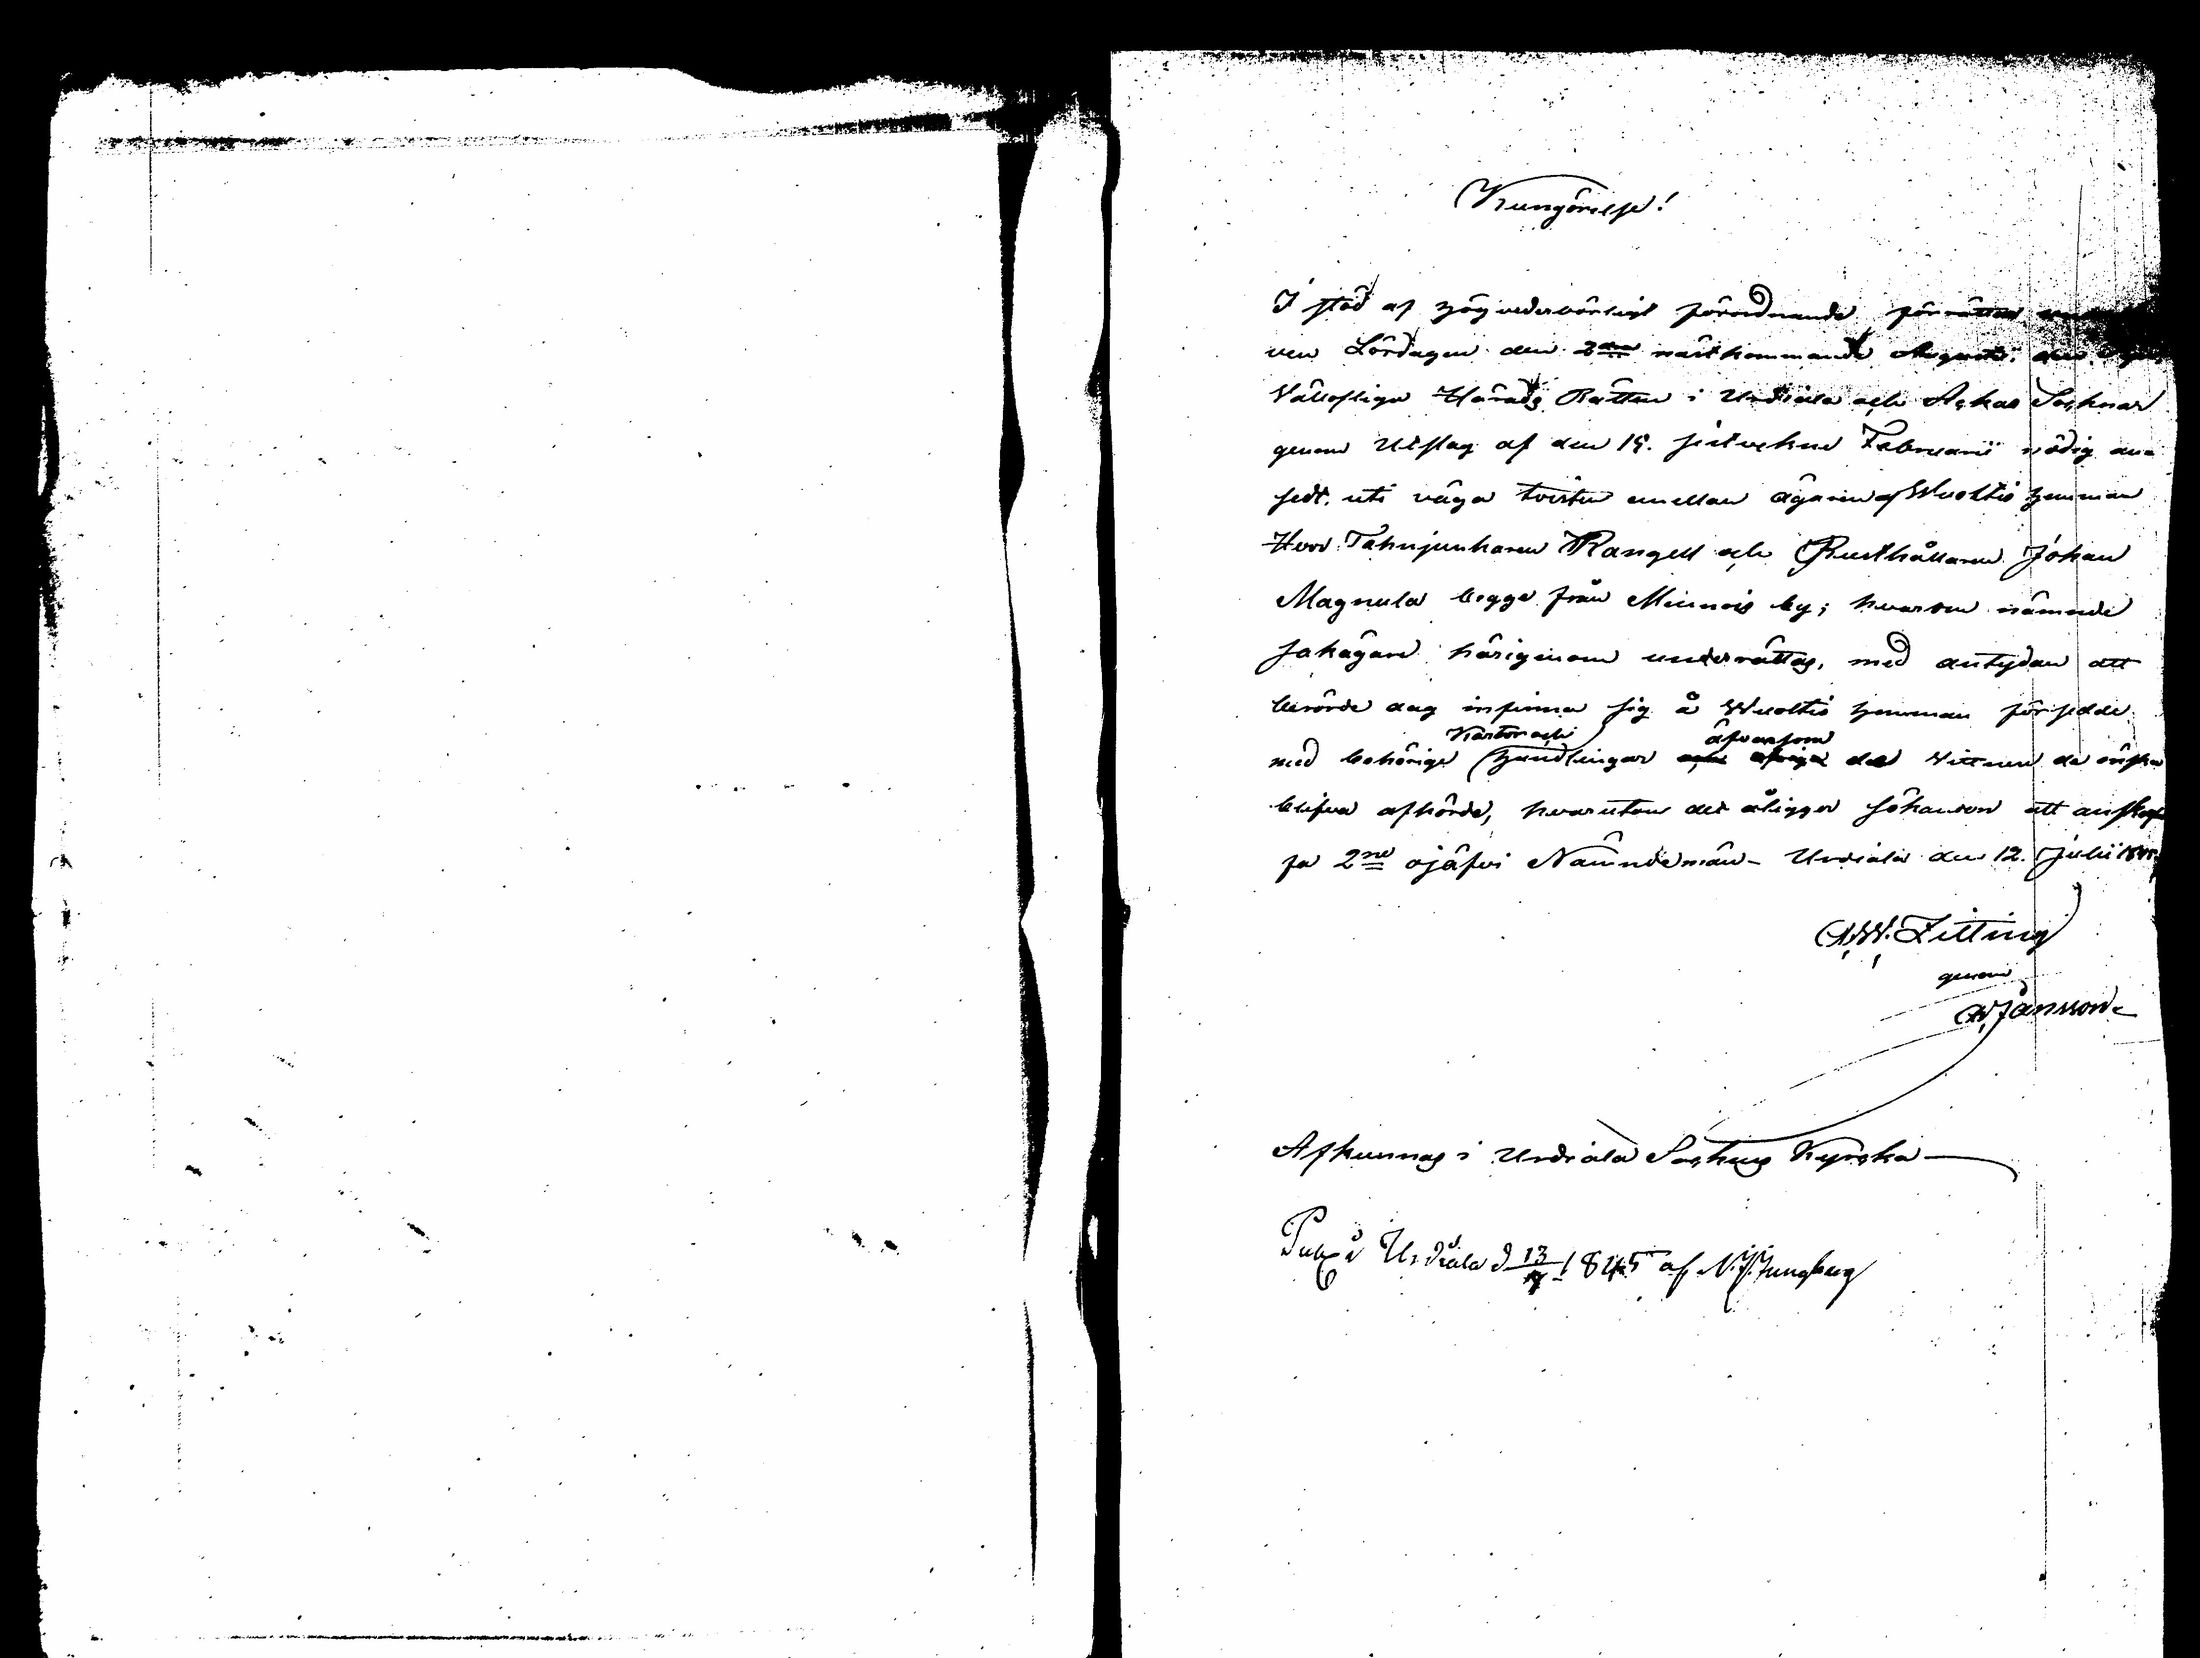 Kungörelse!
I stöd af högvederbörligt förordnande förrättas
ven Lördagen den 2dra nästkommande Augusti, den
Vällofliga Härads Rätten i Urdiala och Ackas Socknar
genom Utslag af den 15. sistvekne Februarii nödig an-
sedt, uti väga tvisten emellan ägaren af Wuoltis hemman
Herr Fahnjunkaren Rangell och Rusthållaren Johan
Magnula begge från Minnois by; hvarom nämnde
sakägare härigenom underrättas, med antydan att
berörde dag infinna sig å Wuoltis hemman försedde
Kartor och äfvensom
med behörige handlingar de Vittnen de önska
blifva afhörde, hvarutom det åligger Johanson att anskaf-
fa 2ne ojäfvi Nämndemän- Urdiala den 12. Julii 1845.
A.W. Zitting
genom
A Jansson
Afkunnas i Urdiala Sockens Kyrcka
Publ i Urdiala d 13/7 1845 af N. Ljungberg